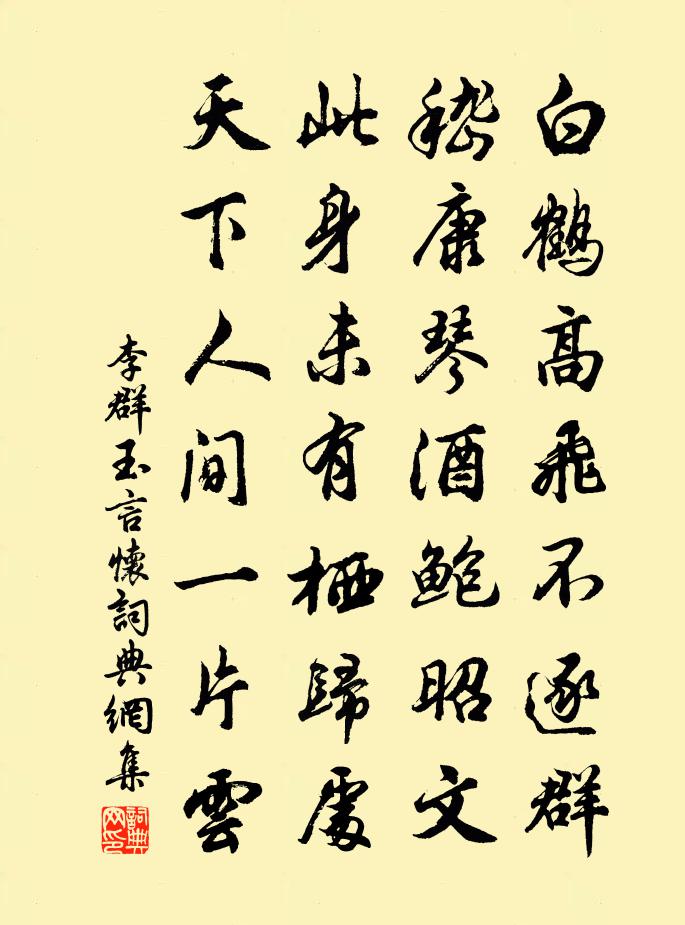 白鶴高飛不逐群
嵇康琴酒鮑昭文
此身未有栖歸處
天下人間一片雲
李群玉言懷詞典網集
詞典网印